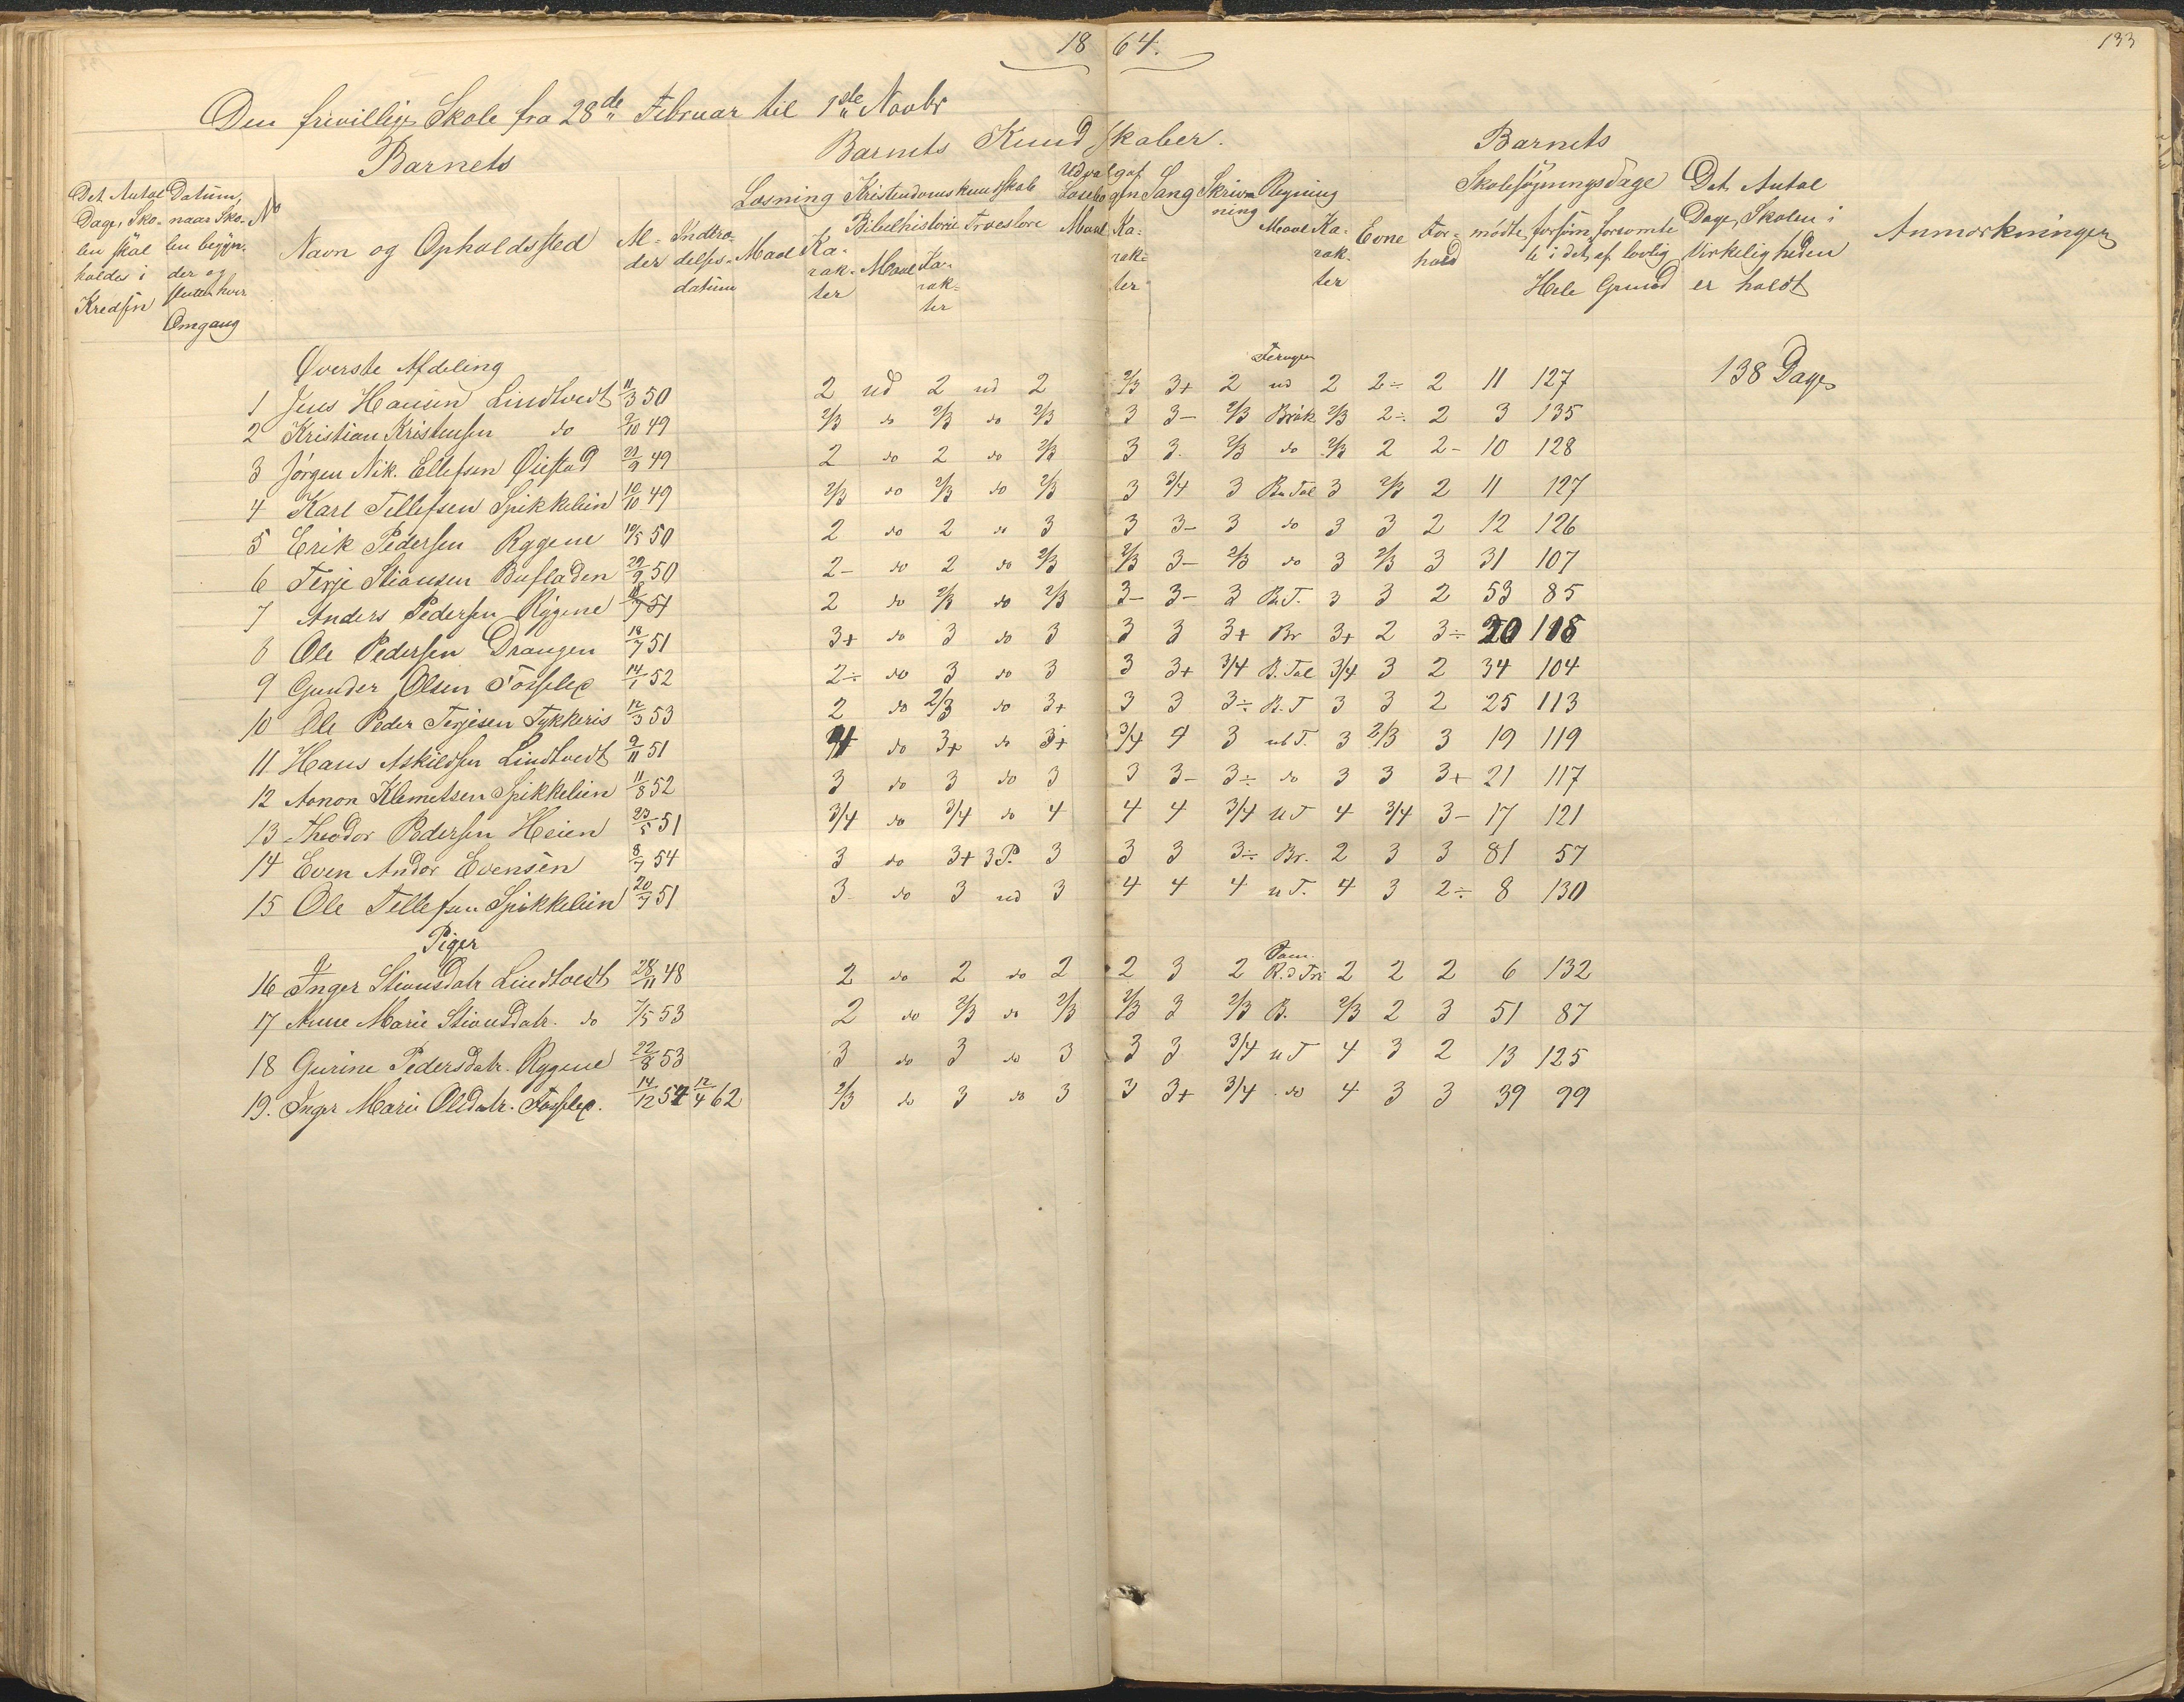 18 64.
133
Den frivillige Skole fra 28de Februar til 1ste Novbr
Barnets
Barnets Kundskaber.
Barnets
Det Antal Dage, Skolen skal holdes i Kredsen
Datum, naar Skolen begynder og slutter hver Omgang
No
Navn og Opholdssted
Alder
Indtrædelsesdatum
Læsning
Maal Karakter
Kristendomskundskab
Bibelhistorie Troeslære
Maal Karakter
Udvalg af Læsebogen
Maal Karakter
Sang
Skrivning
Regning
Maal Karakter
Evne
Forhold
Skolesøgningsdage
mødte, forsømte i det Hele, forsømte af lovlig Grund
Det Antal Dage, Skolen i Virkeligheden er holdt
Anmærkninger
Øverste Afdeling
1 Jens Hansen Lindtvedt 11/3 50 2 ud 2 ud 2 2/3 3+ 2 ud 2 2÷ 2 11 127 138 Dage
2 Kristian Kristensen do 9/10 49 2/3 do 2/3 do 2/3 3 3- 2/3 Brøk 2/3 2÷ 2 3 135
3 Jørgen Nik. Ellefsen Øiestad 21/9 49 2 do 2 do 2/3 3 3. 2/3 do 2/3 2 2- 10 128
4 Karl Tellefsen Spikkelien 10/10 49 2/3 do 2/3 do 2/3 3 3/4 3 Bn Tal 3 2/3 2 11 127
5 Erik Pedersen Rygene 10/5 50 2 do 2 do 3 3 3- 3 do 3 3 2 12 126
6 Terje Stiansen Bufladen 29/9 50 2- do 2 do 2/3 2/3 3- 2/3 do 3 2/3 3 31 107
7 Anders Pedersen Rygene 18/7 51 2 do 2/3 do 2/3 3- 3- 3 B.T. 3 3 2 53 85
8 Ole Pedersen Drangen 18/7 51 3+ do 3 do 3 3 3 3+ Br 3+ 2 3÷ 20 118
9 Gunder Olsen Fosselie 14/1 52 2÷ do 3 do 3 3 3+ 3/4 B. Tal 3/4 3 2 34 104
10 Ole Peder Terjesen Tykkeris 12/3 53 2 do 2/3 do 3+ 3 3 3÷ B.T 3 3 2 25 113
11 Hans Askildsen Lindtvedt 9/11 51 4 do 3+ do 3+ 3/4 4 3 ub T. 3 2/3 3 19 119
12 Aanon Klemetsen Spikkelien 11/8 52 3 do 3 do 3 3 3- 3÷ do 3 3 3+ 21 117
13 Theodor Pedersen Heien 23/5 51 3/4 do 3/4 do 4 4 4 3/4 u T 4 3/4 3- 17 121
14 Even Andor Evensen 8/7 54 3 do 3+ 3 P. 3 3 3 3÷ Br. 2 3 3 81 57
15 Ole Tellefsen Spikkelien 20/7 51 3 do 3 ud 3 4 4 4 u T. 4 3 2÷ 8 130
Piger
16 Inger Stiansdatr Lindtvedt 28/11 48 2 do 2 do 2 2 3 2 R. d Tri 2 2 2 6 132
17 Anne Marie Stiansdatr. do 7/5 53 2 do 2/3 do 2/3 2/3 3 2/3 B. 2/3 2 3 51 87
18 Gurine Pedersdatr. Rygene 22/8 53 3 do 3 do 3 3 3 3/4 u T 4 3 2 13 125
19. Inger Marie Olsdatr. Fosselie. 14/12 54 12/4 62 2/3 do 3 do 3 3 3+ 3/4 do 4 3 3 39 99